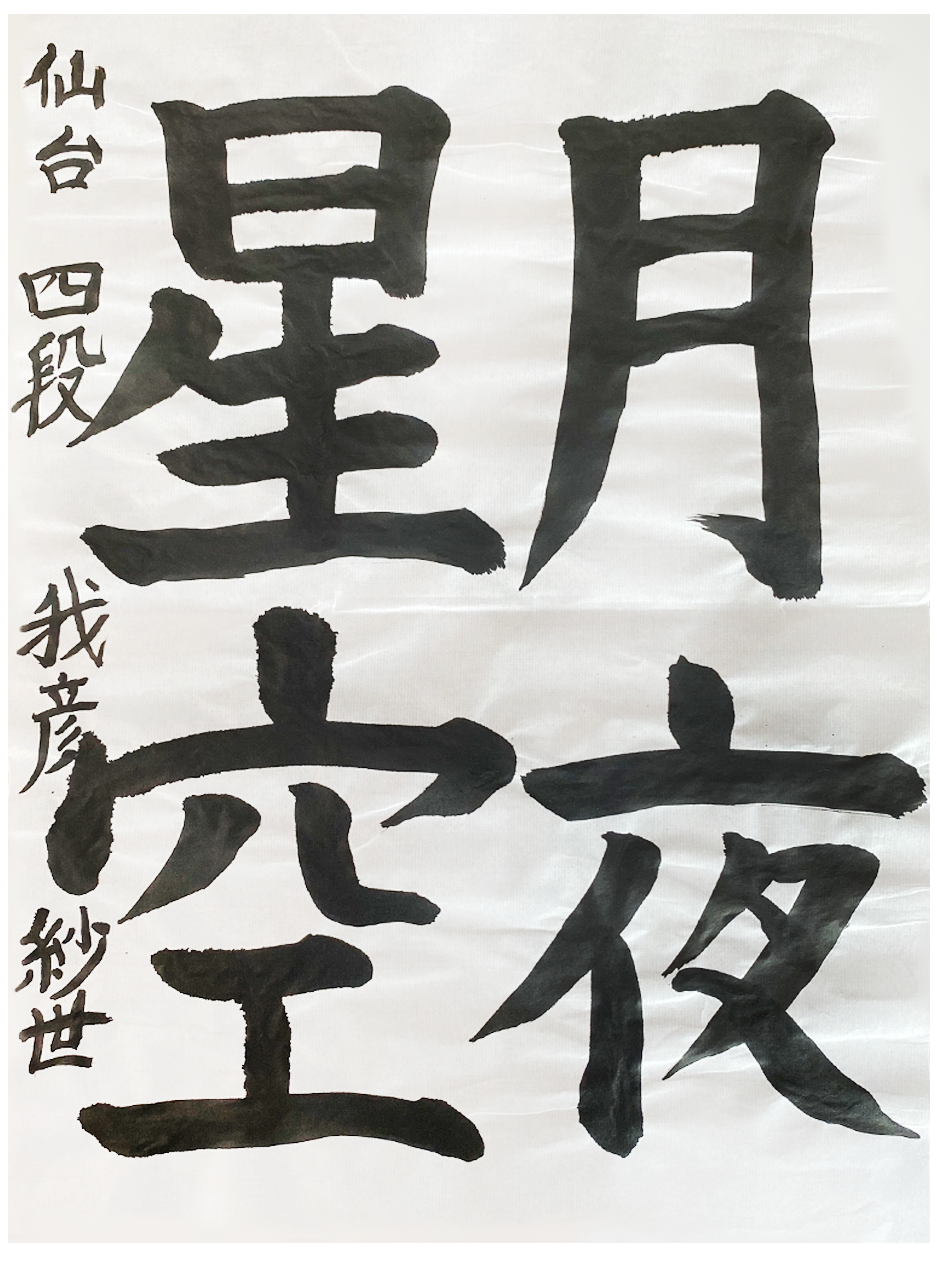 月夜
星空
仙台 四段 我彦 紗世